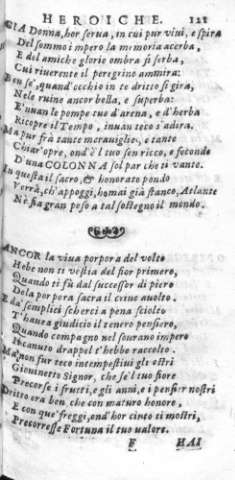 HEROICHE. 121
GIA Donna, hor serua, in cui pur viui, e spira
Del sommo impero la memoria acerba,
E del amiche glorie ombra si serba,
Cui riuerente il peregrino ammira:
Ben se', quand'occhio in te dritto si gira,
Nele ruine ancor bella, e superba:
E'nuan le pompe tue d'arena, e d'herba
Ricopre il Tempo, inuan teco s'adira.
Ma pur frà tante merauiglie, e tante
Chiar'opre, ond'è'l tuo sen ricco, e fecondo
D'una COLONNA sol par che ti vante.
In questa il sacro, & honorato pondo
Verrà, ch'appoggi, homai già stanco, Atlante
Nè sia gran peso a tal sostegno il mondo.
ANCOR la viua porpora del volto
Hebe non ti vestia del fior primero,
Quando ti fù dal successor di piero
Dela porpora sacra il crine auolto.
E da' semplici scherzi a pena sciolto
T'hauea giudicio il tenero pensiero,
Quando compagno nel sourano impero
In canuto drappel t'hebbe raccolto.
Ma non fur teco intempestiui gli ostri
Giouinetto Signor, che se'l tuo fiore
Precorse i frutti, e gli anni, e i pensier nostri
Dritto era ben che con maturo honore,
E con que' freggi, ond'hor cinto ti mostri,
Precorresse Fortuna il tuo valore.
F HAI